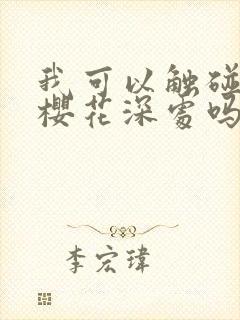 我可以触碰
樱花深处吗
李宏瑋